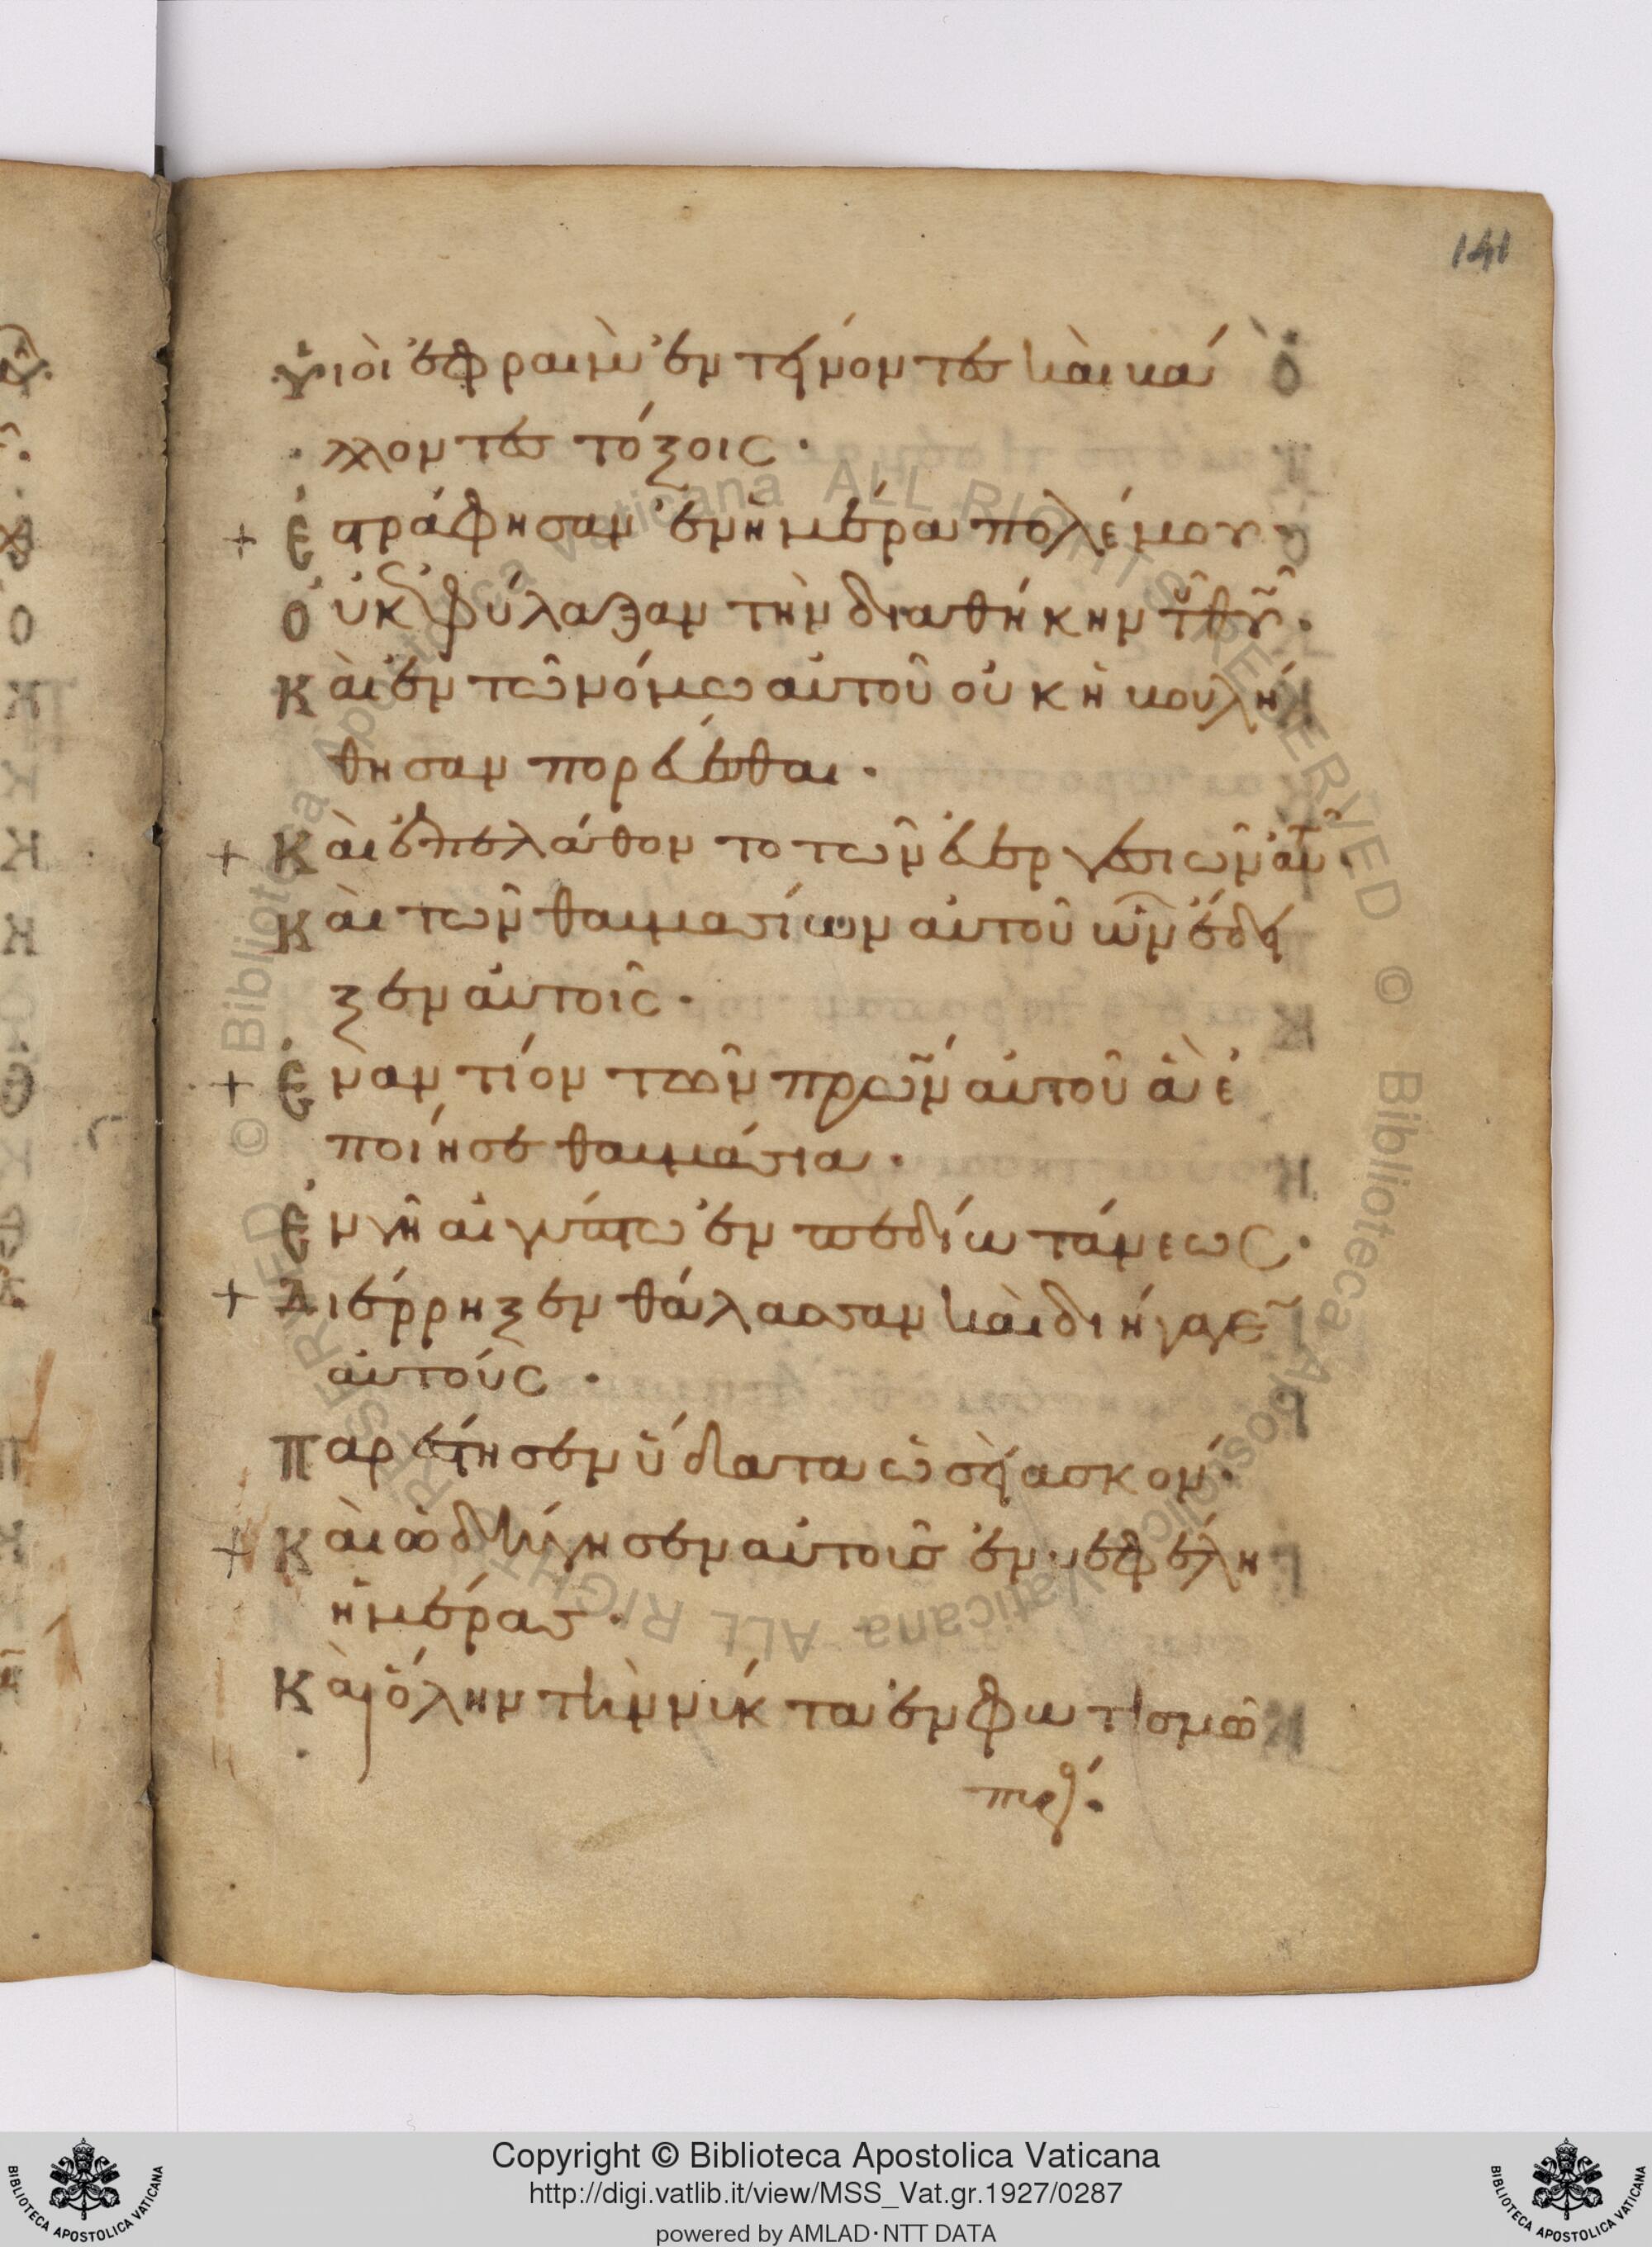 141
ϋιοὶ ἐφραὶμ ἐντείνοντες καὶ βά
λλοντες τόξοις·
+ ἐστράφησαν ἐν ἡμέρα πολέμου·
Οὐκ ἐφύλαξαν τὴν διαθήκην τοῦ θῦ·
Καὶ ἐν τῶ νόμω αὐτοῦ οὐκ ἠβουλή
θησαν πορεύεσθαι·
+ Καὶ ἐπελάθοντο τῶν εὐεργεσιῶν αὐτοῦ·
Καὶ τῶν θαυμασίων αὐτοῦ ὧν ἔδει
ξεν αὐτοῖς·
+ Ἐναντίον τῶν πρων αὐτοῦ ἃ ἐ
ποίησε θαυμάσια·
Ἐν γῆ αἰγύπτω ἐν πεδίω τάνεως·
+ Διέρρηξεν θάλασσαν καὶ διήγαγεν
αὐτούς·
Παρέστησεν ὕδατα ὡσεὶ ἀσκόν·
+ Καὶ ὡδήγησεν αὐτοὺς ἐν νεφέλη
ἡμέρας·
Καὶ ὅλην τὴν νύκτα ἐν φωτισμῶ
πυρός·
Copyright © Biblioteca Apostolica Vaticana
http://digi.vatlib.it/view/MSS_Vat.gr.1927/0287
powered by AMLAD·NTT DATA
BIBLIOTECA APOSTOLICA VATICANA
BIBLIOTECA APOSTOLICA VATICANA
© Biblioteca Apostolica Vaticana ALL RIGHTS RESERVED
© Biblioteca Apostolica Vaticana ALL RIGHTS RESERVED